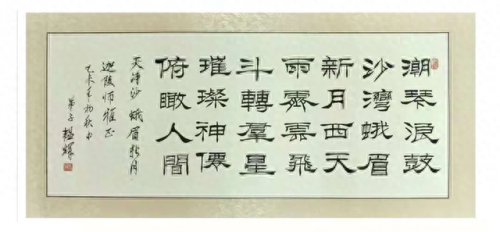 潮琴浪鼓
沙灣蛾眉
新月西天
雨霽雲飛
斗轉羣星
璀璨神僊
俯瞰人間
天净沙 蛾眉新月
迦陵師雅正
乙未年初秋书
弟子